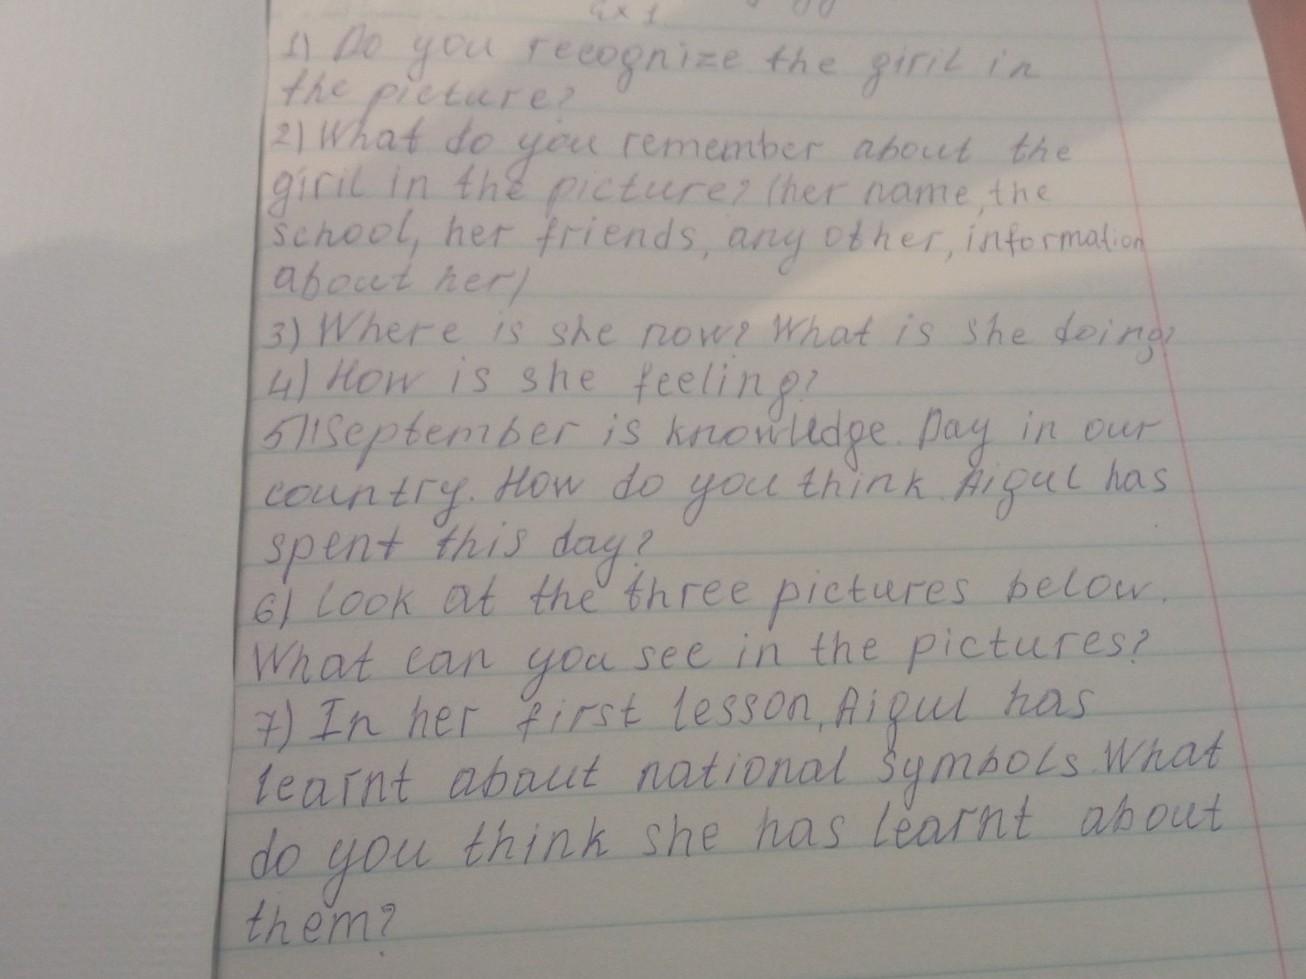 Ex 1
1) Do you recognize the giril in
the picture?
2) What do you remember about the
giril in the picture? (her name, the
school, her friends, any other, information
about her)
3) Where is she now? What is she doing?
4) How is she feeling?
5) 1 September is knowledge. Day in our
country. How do you think Aigul has
spent this day?
6) Look at the three pictures below.
What can you see in the pictures?
7) In her first lesson, Aigul has
learnt abaut national symbols. What
do you think she has learnt about
them?